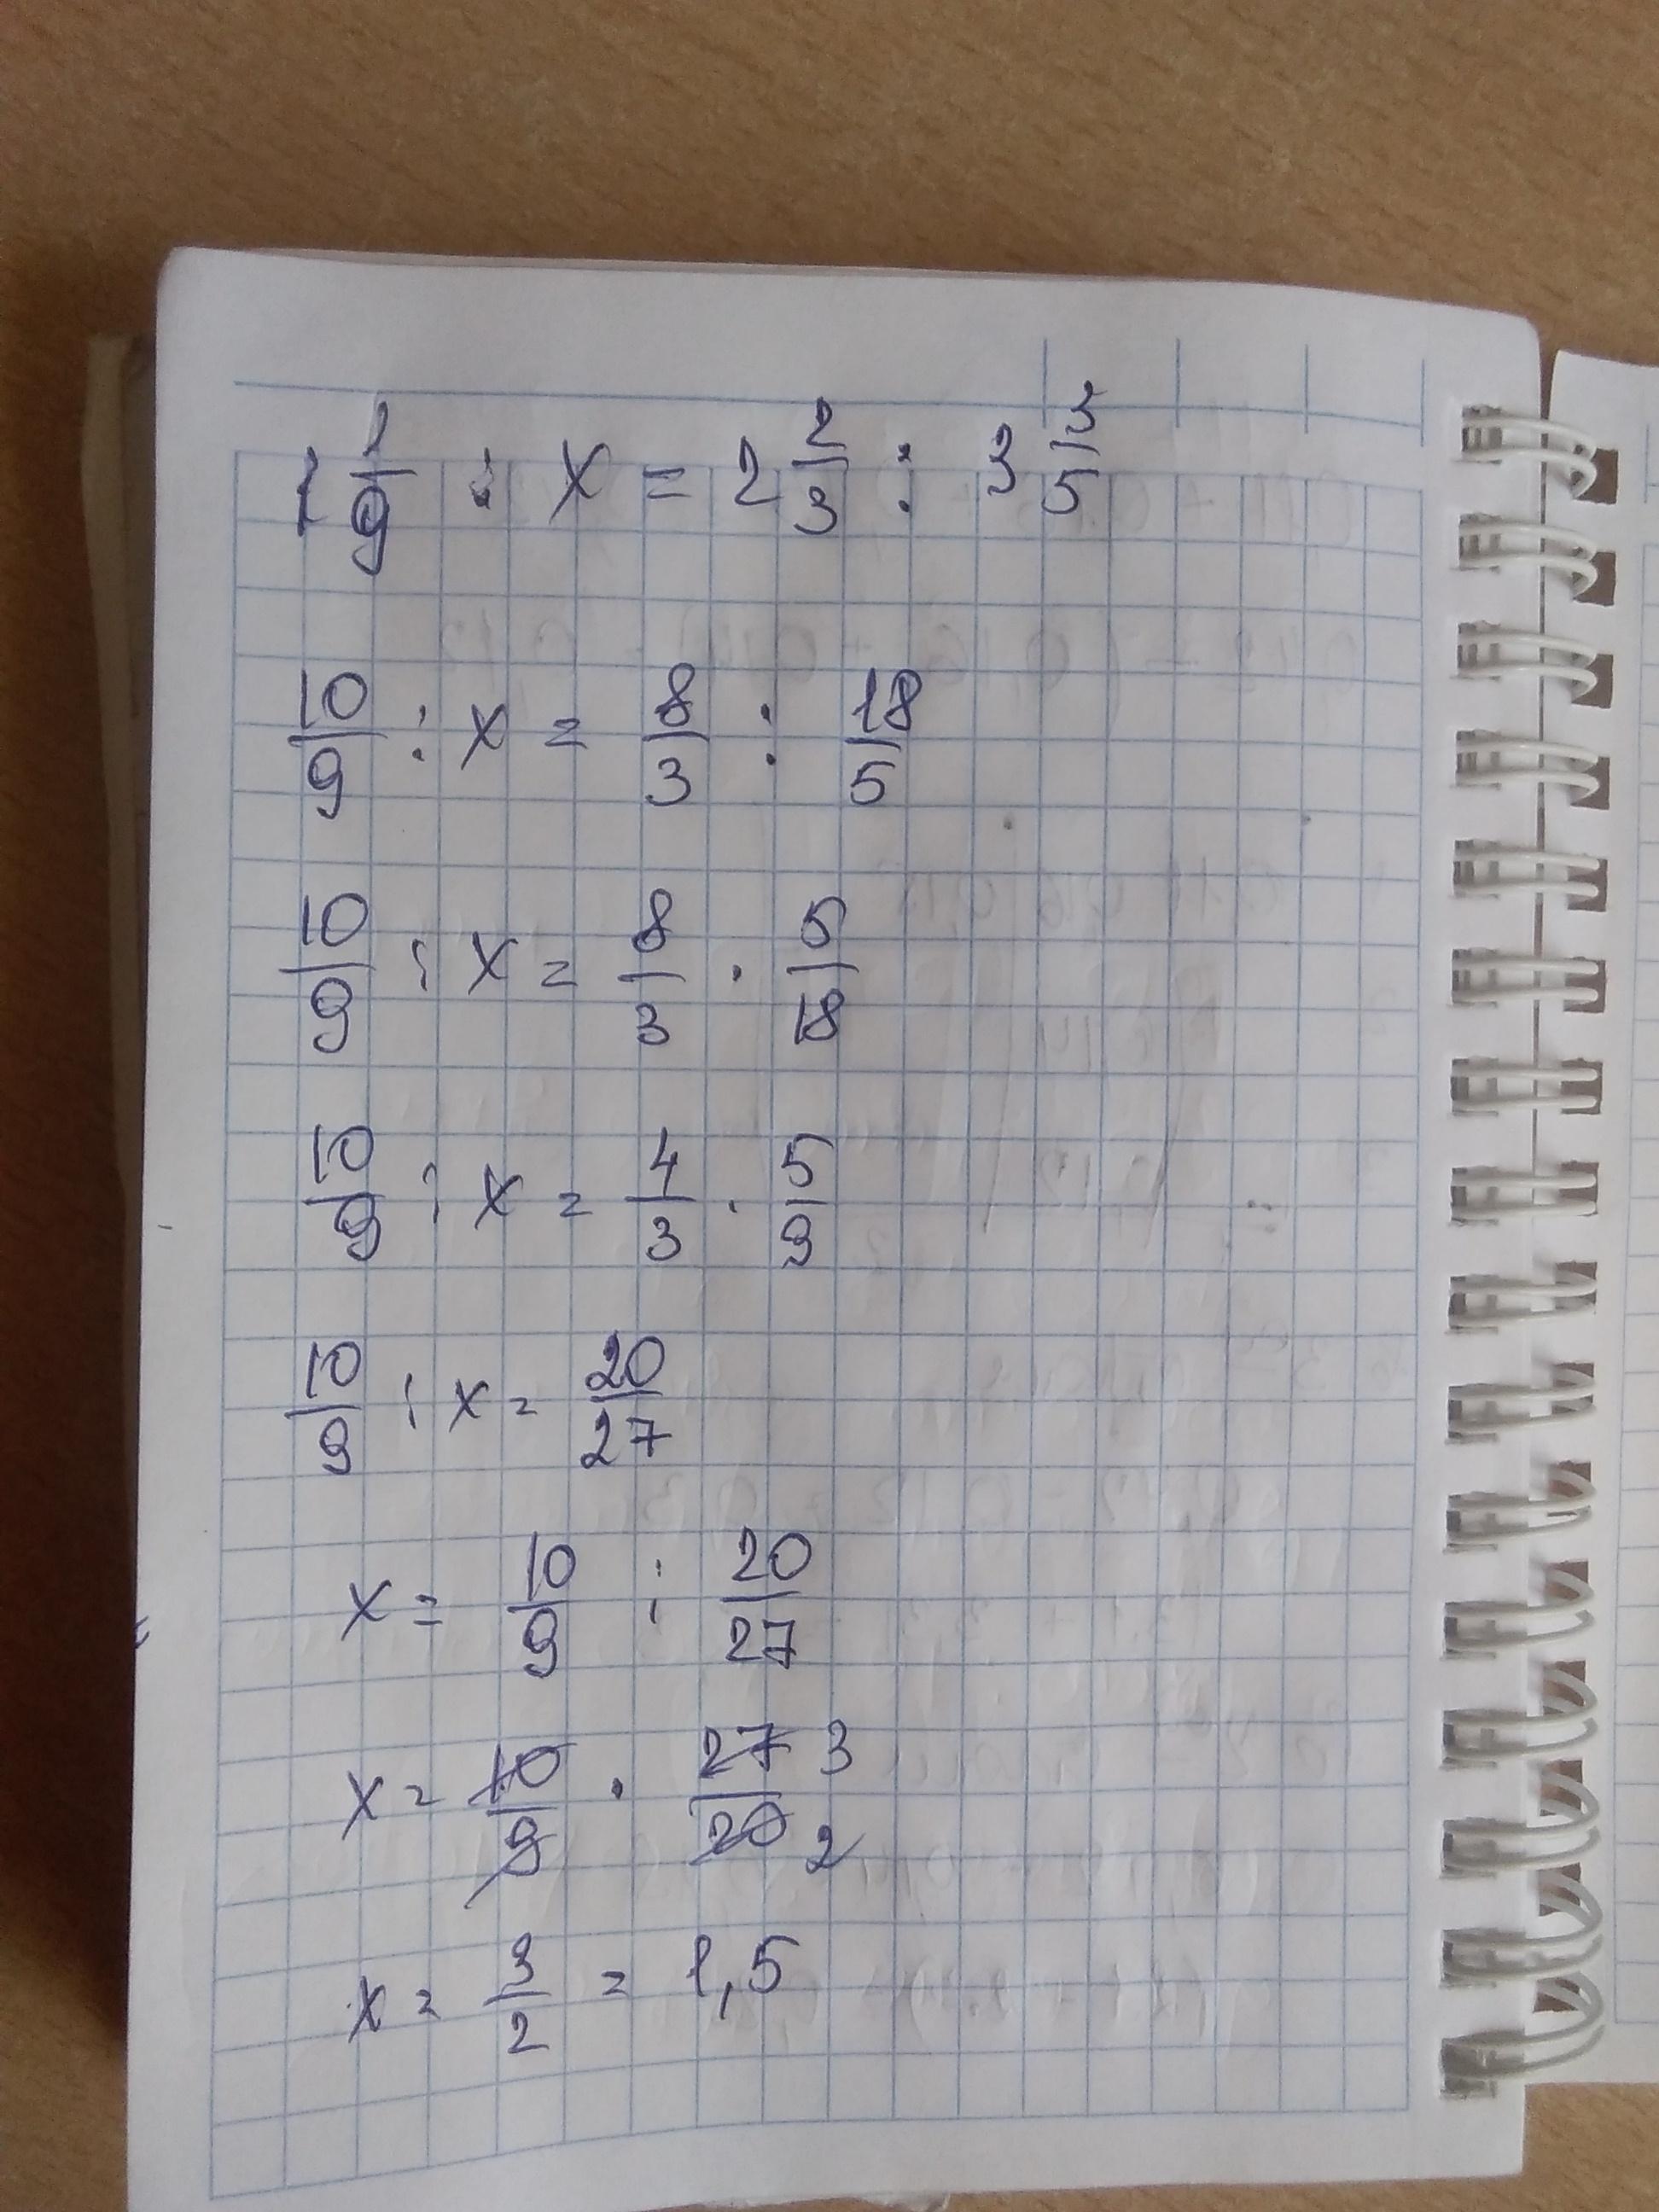 1 1/9 : x = 2 2/3 : 3 3/5
10/9 : x = 8/3 : 18/5
10/9 : x = 8/3 · 5/18
10/9 : x = 4/3 · 5/9
10/9 : x = 20/27
x = 10/9 : 20/27
x = 10/9 · 27/20 3 2
x = 3/2 = 1,5